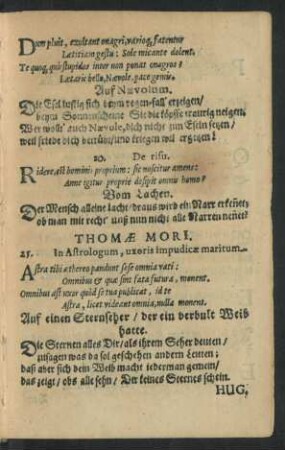 Dum pluit, exultant onagri, varioq; fatentur
Lætitiam gestu: Sole micante dolent.
Te quoq, quis stupidos inter non ponat onagros?
Lætaris bello, Nævole, pace gemis.
Auff Nævolum.
Die Esel lustig sich beym regen-fall erzeigen/
beym Sonnenscheine Sie die köpffe traurig neigen.
Wer wollt' auch Nævole, dich nicht zun Eseln setzen/
weil friede dich betrübt/und kriegen will ergetzen?
20. De risu.
Ridere est hominis proprium: sic noscitur amens:
Anne igitur proprie desipit omnis homo?
Vom Lachen.
Der Mensch alleine lacht/draus wird ein Narr erkeñet;
ob man mit recht' uns nun nicht alle Narren neñet?
THOMÆ MORI.
21. In Astrologum, uxoris impudicæ maritum.
Astra tibi æthereo pandunt sese omnia vati:
Omnibus & quæ sint fata futura, monent.
Omnibus ast uxor quòd se tua publicat, id te
Astra, licet videant omnia, nulla monent.
Auff einen Sternseher / der ein verbult Weib
hatte.
Die Sternen alles Dir/als ihrem Seher deuten/
zusagen was da sol geschehen andern Leuten:
daß aber sich dein Weib macht iederman gemein/
das zeigt / obs alle sehn / Dir keines Sternes schein.
HUG,